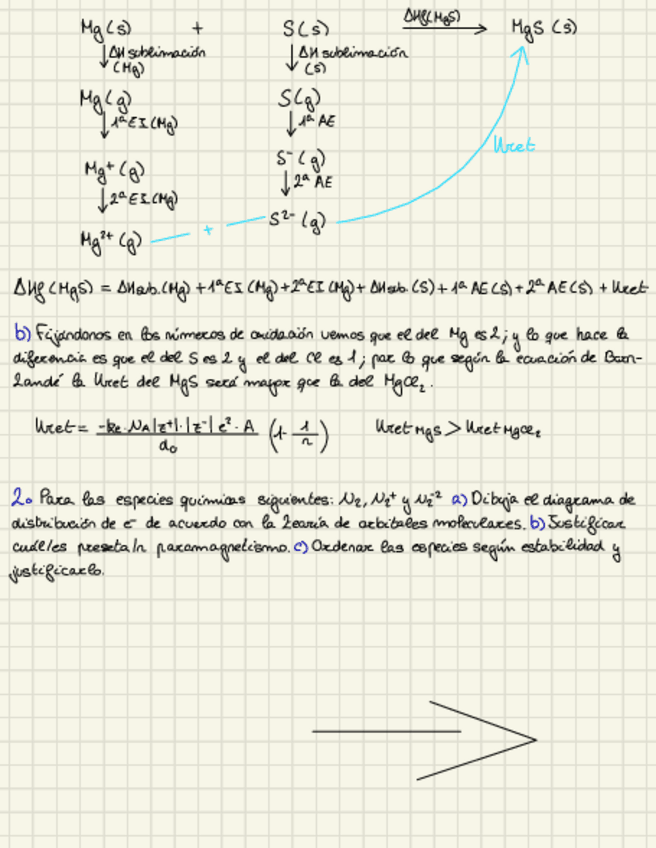 Mg(s) + S(s) ΔHf(MgS) MgS (s)
↓ΔH sublimación (Mg) ↓ΔH sublimación (S)
Mg(g) S(g)
↓1ª EI.(Mg) ↓1ª AE
Mg⁺(g) S⁻(g)
↓2ª EI.(Mg) ↓2ª AE
Uret
Mg²⁺(g) + S²⁻(g)
ΔHf (MgS) = ΔHsub.(Mg) + 1ª EI (Mg) + 2ª EI (Mg) + ΔHsub.(S) + 1ª AE(S) + 2ª AE(S) + Uret
b) Fijándonos en los números de oxidación vemos que el del Mg es 2; y lo que hace la
diferencia es que el del S es 2 y el del Cl es 1; por lo que según la ecuación de Born-
Landé la Uret del MgS será mayor que la del MgCl₂.
Uret = -ke·NA|z⁺|·|z⁻| e²·A / d₀ (1 - 1/n) Uret MgS > Uret MgCl₂
2. Para las especies químicas siguientes: N₂, N₂⁺ y N₂⁻² a) Dibuja el diagrama de
distribución de e⁻ de acuerdo con la Teoría de orbitales moleculares. b) Justificar
cuál/es preseta/n paramagnetismo. c) Ordenar las especies según estabilidad y
justificarlo.